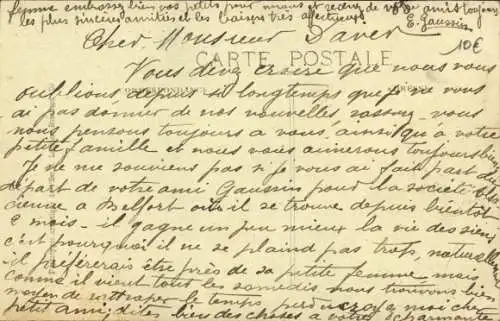 femme embrassez bien vos petits pour nous et recevez de vos amis toujours
les plus sincères amitiés et les baisers très affectueux
E. Gaussin
10€
Cher Monsieur Daver
CARTE POSTALE
Vous devez croire que nous vous
oublions, depuis si longtemps que je ne vous
ai pas donner de nos nouvelles, rassurez-vous
nous pensons toujours a vous, ainsi qu'a votre
petite famille et nous vous aimerons toujours bien
Je ne me souviens pas si je vous ai fait part du
départ de votre ami Gaussin pour la société
a Belfort ou il se trouve depuis bientôt
mois - il gagne un peu mieux la vie des siens
c'est pourquoi il ne se plaind pas trop, naturellement
il préférerais être près de sa petite femme mais
comme il vient tout les samedis nous trouvons bien
moyen de rattraper le temps perdu croyez moi cher
petit ami, dites bien des choses a votre charmante